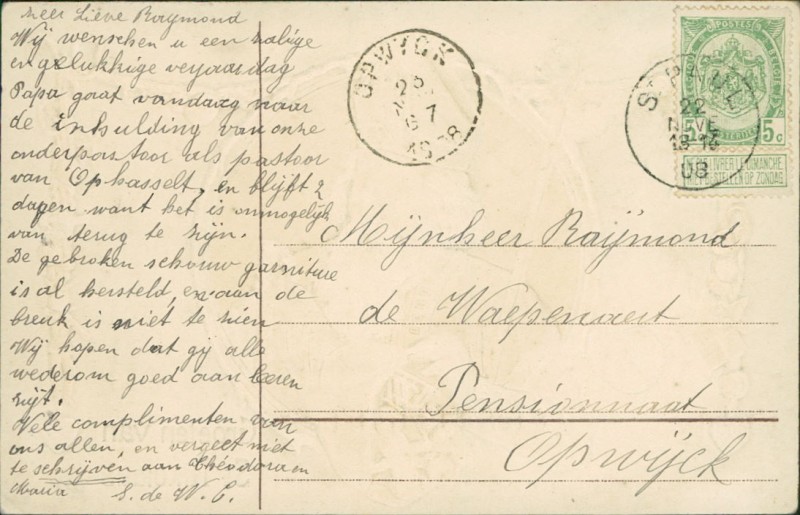 Zeer Liève Raymond
Wij wenschen u een zalige
en gelukkige verjaardag
Papa gaat vandaag naar
de inhulding van onze
onderpastoor als pastoor
van Ophasselt, en blijft 2
dagen want het is onmogelijk
van terug te zijn.
De gebroken schouw garniture
is al hersteld, en aan de
breuk is niet te zien
Wij hopen dat gij alle
wederom goed aan leeren
zijt.
Vele complimenten van
ons allen, en vergeet niet
te schrijven aan Théodora en
Maria S. de W. C.
OPWYCK
1908
POSTES
22
NOVE
18 14
08
5 5c
NE PAS LIVRER LE DIMANCHE
NIET BESTELLEN OP ZONDAG
Mijnheer Raÿmond
de Waepenaert
Pensionnaat
Opwijck